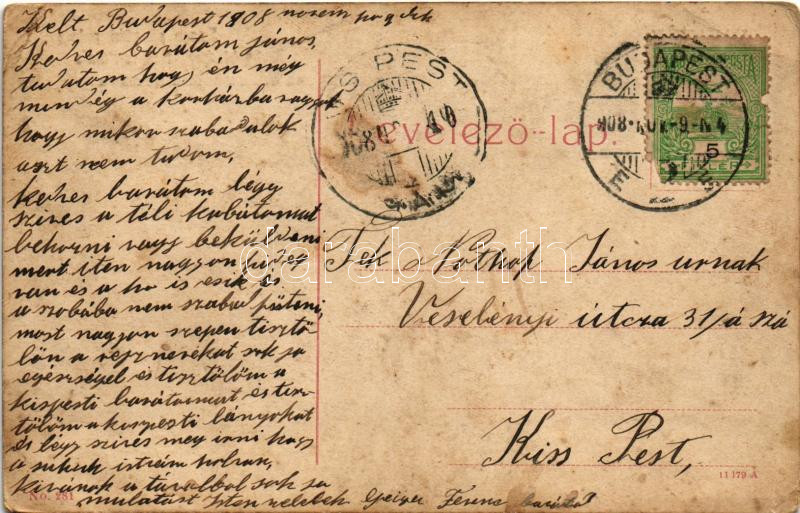 Kelt Budapest 1908 novem
Kedves barátom János,
tudatom hogy én még
mindég a korházba vagyok
hogy mikor szabadulok
azt nem tudom,
kedves barátom légy
szives a téli kabátomat
behozni vagy beküldeni
mert iten nagyon hideg
van és a ho is esik és
a szobába nem szabad fűteni,
most nagyon szepen tisztö
lön a sok jo
egésségel és tisztölöm a
kispesti barátomat és tisz
tölöm a kispesti lányokat
és légy szives meg irni hogy
a istván holvan,
kivánok a távolbol sok jo
mulatást Isten veletek Geiger Ferenc barátod
No. 281
KISPEST
908
BUDAPEST
908 NOV. 9. N4
E
POSTA
5
Levelező-lap.
darabanth.com
Tek Nothof János urnak
Veselényi útcza 31/á szá
Kiss Pest,
11179 A